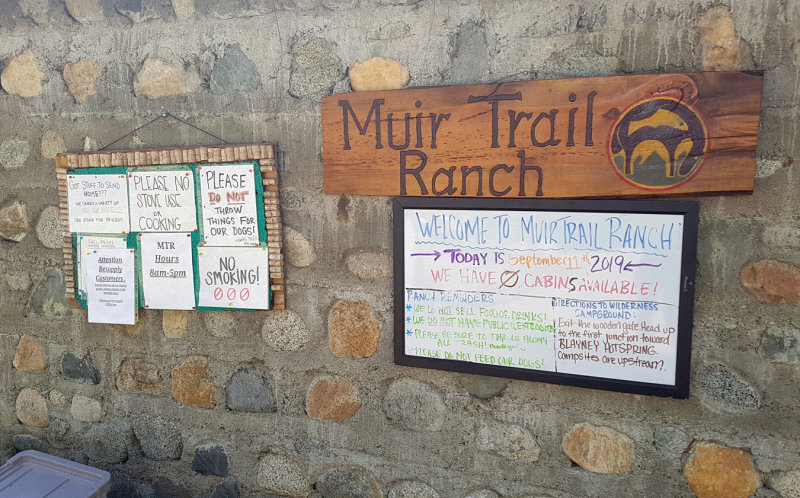 GOT STUFF TO SEND
HOME???
WE CARRY A VARIETY OF
SEE STORE FOR PRICES!
PLEASE NO
STOVE USE
OR
COOKING
PLEASE
DO NOT
THROW
THINGS FOR
OUR DOGS!
Attention
Resupply
Customers:
MTR
Hours
8am-5pm
NO
SMOKING!
Muir Trail
Ranch
WELCOME TO MUIR TRAIL RANCH
TODAY IS September 11th 2019
WE HAVE Ø CABINS AVAILABLE!
RANCH REMINDERS
* WE DO NOT SELL FOOD OR DRINKS!
* WE DO NOT HAVE PUBLIC RESTROOMS
* PLEASE BE SURE TO THROW AWAY
ALL TRASH!
PLEASE DO NOT FEED OUR DOGS!
DIRECTIONS TO WILDERNESS
CAMPGROUND:
Exit the wooden gate. Head up
to the first junction toward
BLAYNEY HOTSPRING.
Campsites are upstream.